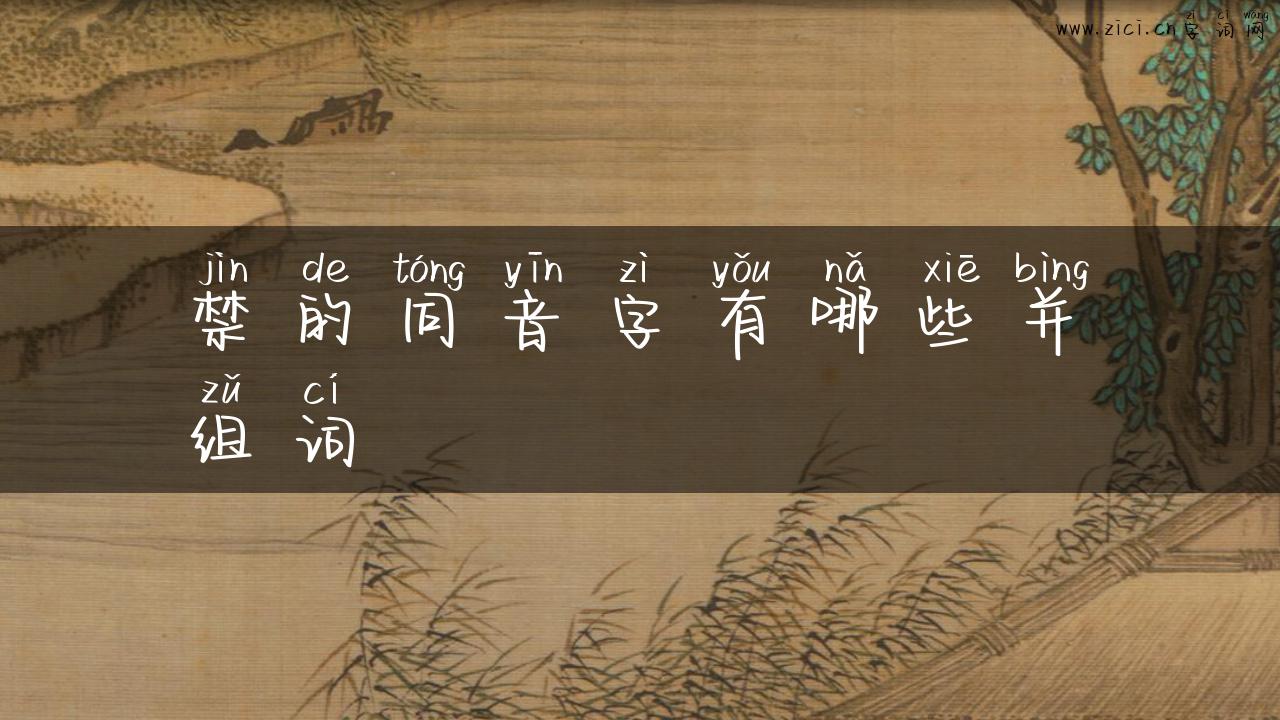 zì cí wǎng
www.zici.cn字词网
jìn de tóng yīn zì yǒu nǎ xiē bìng
禁的同音字有哪些并
zǔ cí
组词